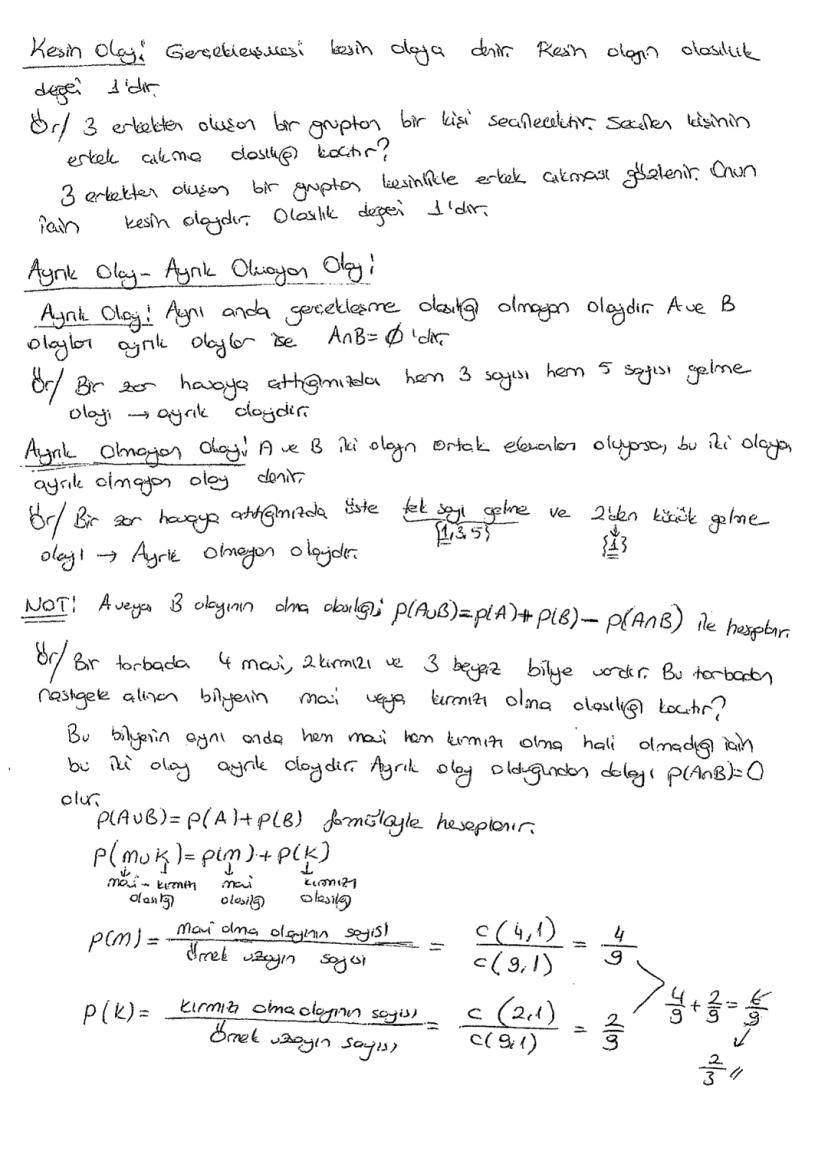 Kesin Olay: Gerçekleşmesi kesin olaya denir. Kesin olayın olasılık
değeri 1'dir.
Ör/ 3 erkekten oluşan bir gruptan bir kişi seçilecektir. Seçilen kişinin
erkek çıkma olasılığı kaçtır?
3 erkekten oluşan bir gruptan kesinlikle erkek çıkması gözlenir. Onun
için kesin olaydır. Olasılık değeri 1'dir.
Ayrık Olay - Ayrık Olmayan Olay:
Ayrık Olay: Aynı anda gerçekleşme olasılığı olmayan olaydır. A ve B
olayları ayrık olaylar ise A∩B=∅'dir.
Ör/ Bir zar havaya attığımızda hem 3 sayısı hem 5 sayısı gelme
olayı → ayrık olaydır.
Ayrık Olmayan Olay: A ve B iki olayın ortak elemanları oluyorsa, bu iki olaya,
ayrık olmayan olay denir.
Ör/ Bir zar havaya attığımızda üste tek sayı gelme ve 2'den küçük gelme
{1,3,5} {1}
olayı → Ayrık olmayan olaydır.
NOT: A veya B olayının olma olasılığı; P(A∪B)=P(A)+P(B)-P(A∩B) ile hesaplanır.
Ör/ Bir torbada 4 mavi, 2 kırmızı ve 3 beyaz bilye vardır. Bu torbadan
rastgele alınan bilyenin mavi veya kırmızı olma olasılığı kaçtır?
Bu bilyenin aynı anda hem mavi hem kırmızı olma hali olmadığı için
bu iki olay ayrık olaydır. Ayrık olay olduğundan dolayı P(A∩B)=0
olur.
P(A∪B)=P(A)+P(B) formülüyle hesaplanır.
P(m∪k)=P(m)+P(k)
mavi - kırmızı olasılığı mavi olasılığı kırmızı olasılığı
P(m) = mavi olma olayının sayısı / Örnek uzayın sayısı = C(4,1) / C(9,1) = 4/9
P(k) = kırmızı olma olayının sayısı / Örnek uzayın sayısı = C(2,1) / C(9,1) = 2/9
4/9 + 2/9 = 6/9
2/3 //